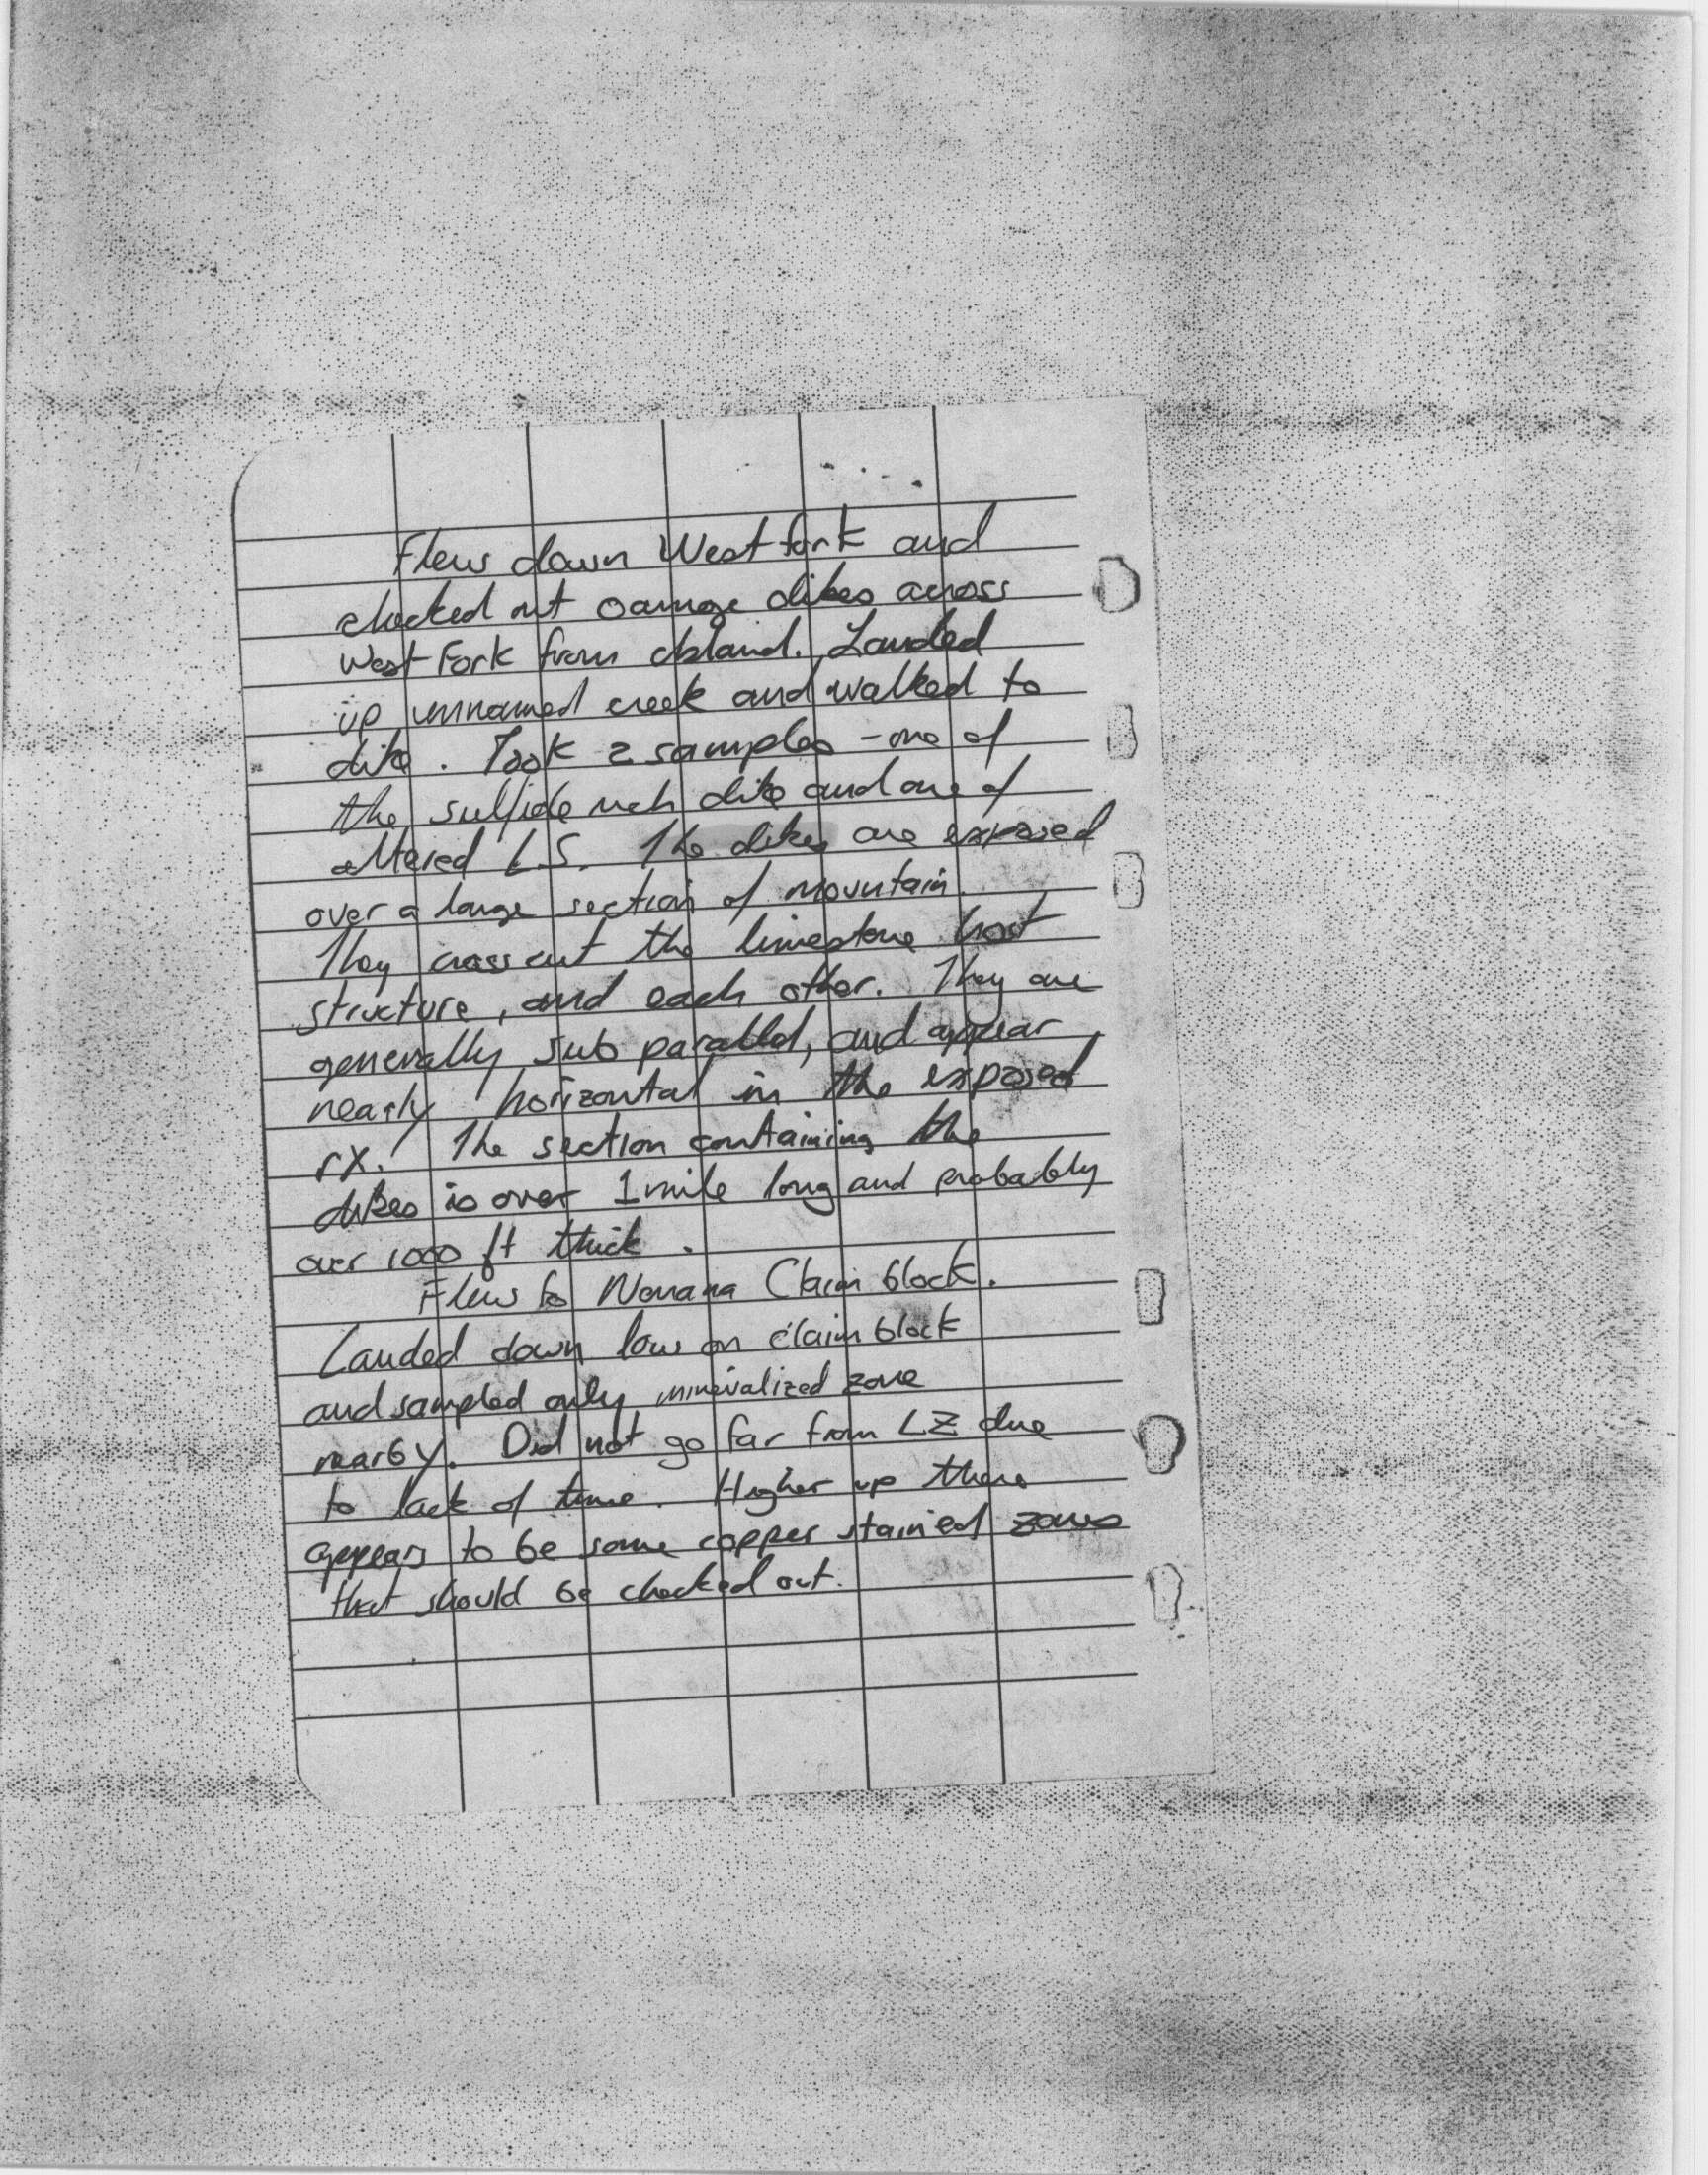 Flew down West fork and
checked out oarnge dikes across
West Fork from island. Landed
up unnamed creek and walked to
dike. Took 2 samples - one of
the sulfide rich dike and one of
altered L.S. The dikes are exposed
over a large section of mountain.
They cross cut the limestone host
structure, and each other. They are
generally sub parallel, and appear
nearly horizontal in the exposed
rx. The section containing the
dikes is over 1 mile long and probably
over 1000 ft thick.
Flew to Claim block.
Landed down low on claim block
and sampled only mineralized zone
nearby. Did not go far from LZ due
to lack of time. Higher up there
appears to be some copper stained zones
that should be checked out.